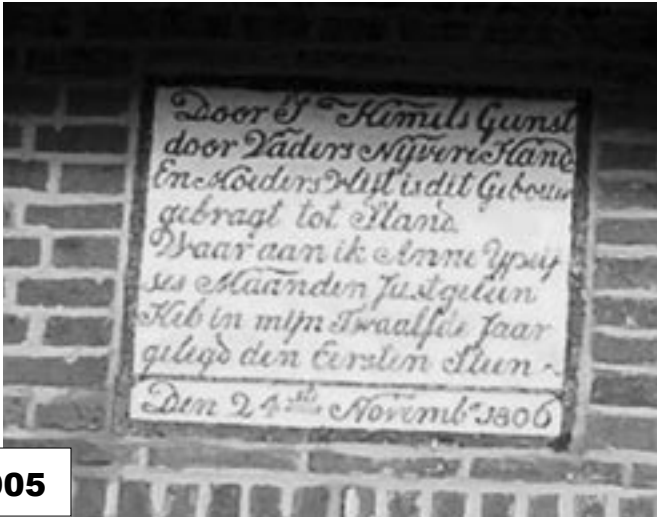 Door 'S Hemels Gunst
door Vaders Nÿvere Hand
En Moeders Vlijt is dit Gebouw
gebragt tot Stand
Waar aan ik Anne
ses Maanden Just geleen
Heb in mijn Twaalfde Jaar
gelegd den Eersten Steen
Den 24 Novemb.r 1806
005